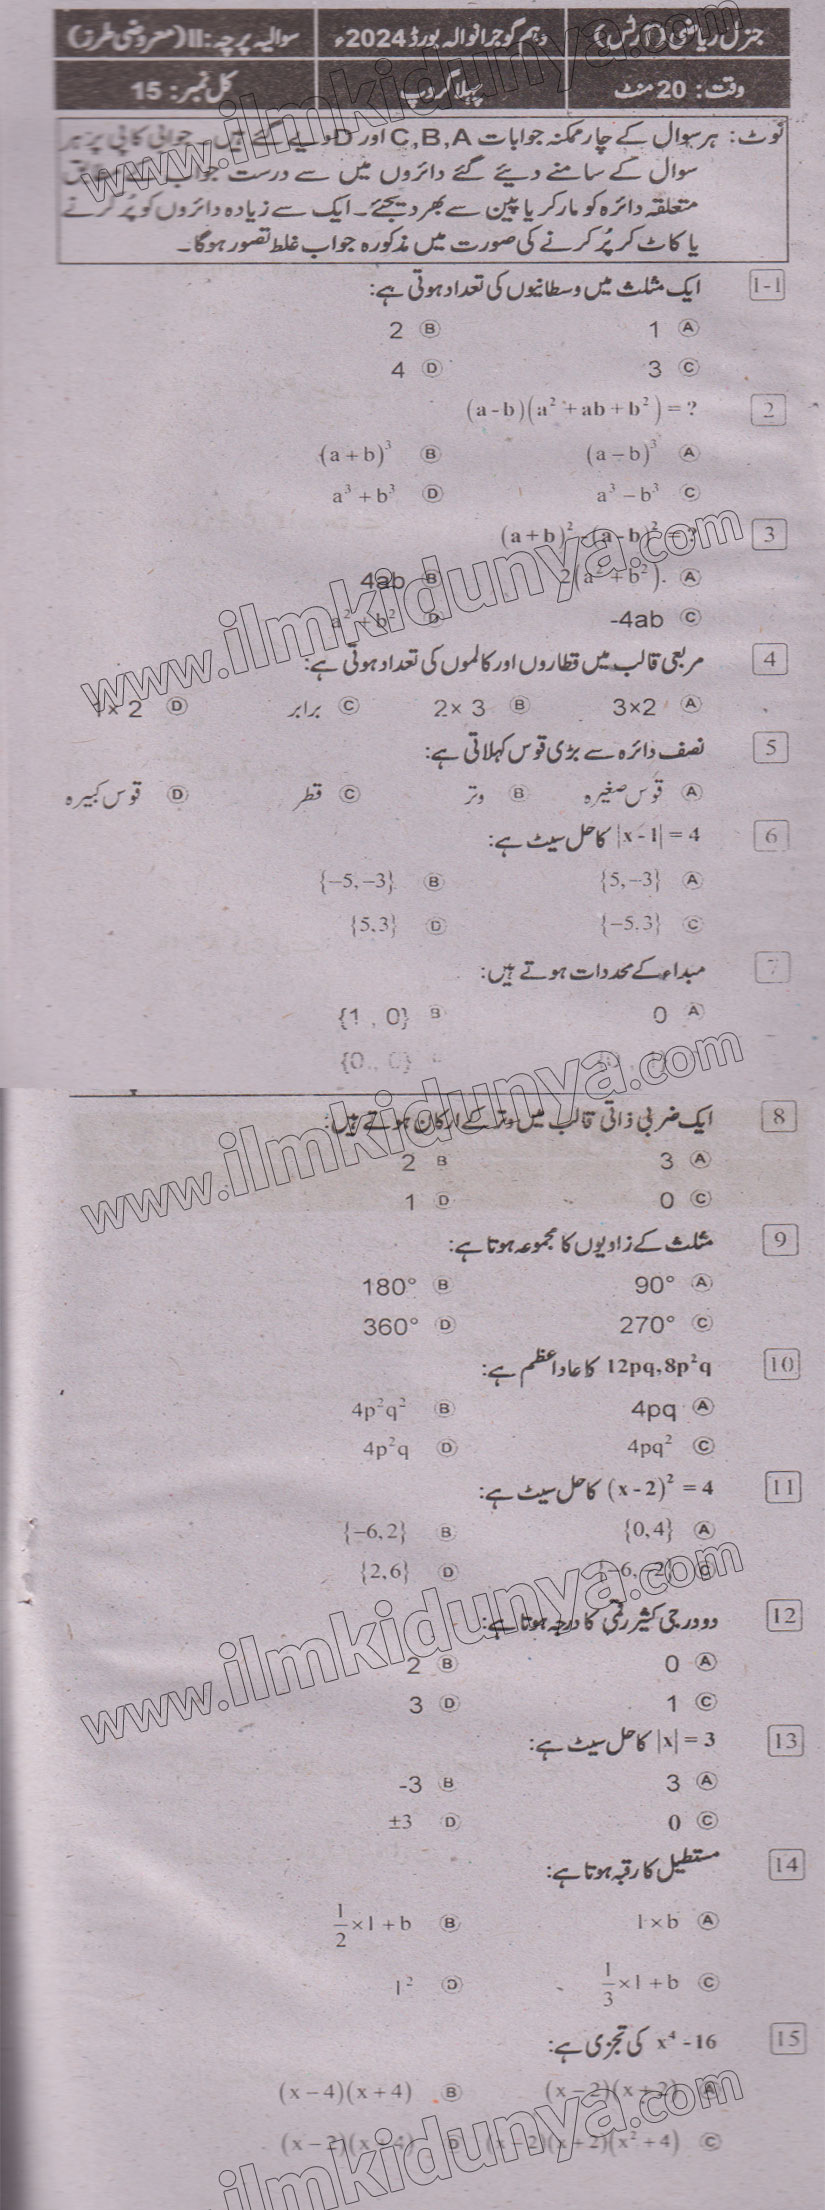 جنرل ریاضی (آرٹس) دہم گوجرانوالہ بورڈ 2024ء سوالیہ پرچہ: II (معروضی طرز)
وقت: 20 منٹ پہلا گروپ کل نمبر: 15
نوٹ: ہر سوال کے چار ممکنہ جوابات C,B,A اور D دیے گئے ہیں۔ جوابی کاپی پر ہر
سوال کے سامنے دیئے گئے دائروں میں سے درست جواب کے مطابق
متعلقہ دائرہ کو مارکر یا پین سے بھر دیجئے۔ ایک سے زیادہ دائروں کو پُر کرنے
یا کاٹ کر پُر کرنے کی صورت میں مذکورہ جواب غلط تصور ہوگا۔
1-1 ایک مثلث میں وسطانیوں کی تعداد ہوتی ہے:
A 1 B 2
C 3 D 4
2 (a-b)(a²+ab+b²) = ?
A (a−b)³ B (a+b)³
C a³−b³ D a³+b³
3 (a+b)²-(a-b)² = ?
A 2(a²+b²). B 4ab
C -4ab D a²+b²
4 مربعی قالب میں قطاروں اور کالموں کی تعداد ہوتی ہے:
A 3×2 B 2×3 C برابر D 1×2
5 نصف دائرہ سے بڑی قوس کہلاتی ہے:
A قوس صغیرہ B وتر C قطر D قوس کبیرہ
6 |x-1| = 4 کا حل سیٹ ہے:
A {5,−3} B {−5,−3}
C {−5,3} D {5,3}
7 مبداء کے محددات ہوتے ہیں:
A 0 B {1 , 0}
{0 , 0}
8 ایک ضربی ذاتی قالب میں وتر کے ارکان ہوتے ہیں:
A 3 B 2
C 0 D 1
9 مثلث کے زاویوں کا مجموعہ ہوتا ہے:
A 90° B 180°
C 270° D 360°
10 12pq, 8p²q کا عاد اعظم ہے:
A 4pq B 4p²q²
C 4pq² D 4p²q
11 (x-2)² = 4 کا حل سیٹ ہے:
A {0,4} B {−6,2}
C {−6,−2} D {2,6}
12 دو درجی کثیر رقمی کا درجہ ہوتا ہے:
A 0 B 2
C 1 D 3
13 |x| = 3 کا حل سیٹ ہے:
A 3 B -3
C 0 D ±3
14 مستطیل کا رقبہ ہوتا ہے:
A l×b B 1/2×l+b
C 1/3×l+b D l²
15 x⁴-16 کی تجزی ہے:
A (x−2)(x+2) B (x−4)(x+4)
C (x−2)(x+2)(x²+4) D (x−2)(x+4)
www.ilmkidunya.com
www.ilmkidunya.com
www.ilmkidunya.com
www.ilmkidunya.com
www.ilmkidunya.com